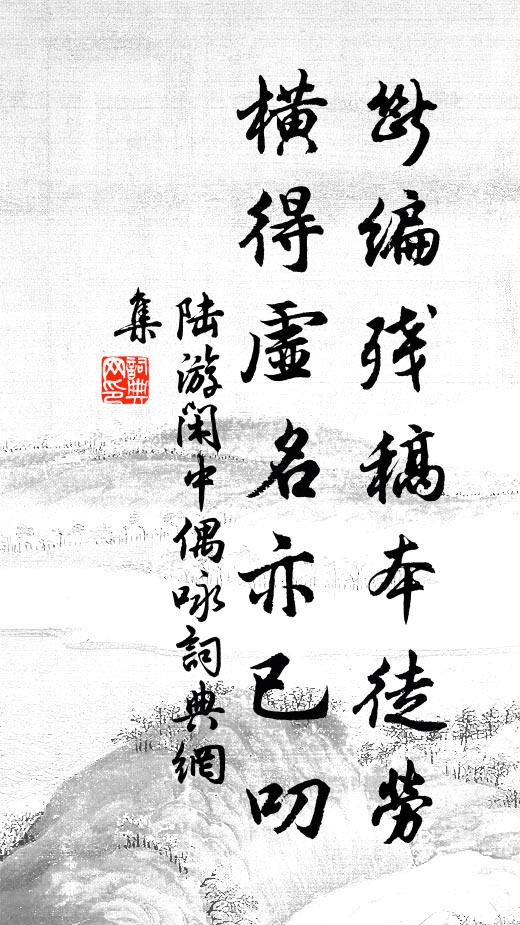 断编残稿本徒劳
横得虚名亦已叨
陆游闲中偶咏詞典網
集
詞典网印